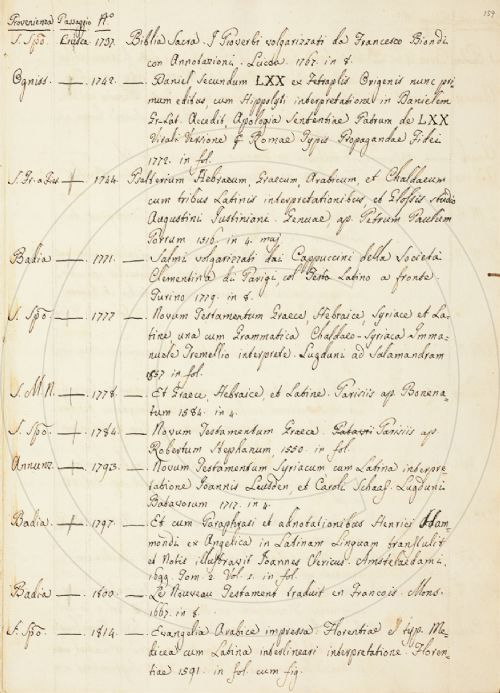 159
Provenienza Passaggio N.o
S. Spo. Crusca. 1737. Biblia Sacra. I Proverbi volgarizzati da Francesco Biondi
con Annotazioni. Lucca 1767. in 8.
Ogniss. — 1742. — Daniel Secundum LXX ex Tetraplis Origenis nunc pri
mum editus, cum Hippolyti interpretatione in Danielem
Gr-Lat. Accedit, Apologia Sententiae Patrum de LXX
Virali Versione &. Romae Typis Propagandae Fidei
1772. in fol.
1744. Psalterium Hebraeum, Graecum, Arabicum, et Chaldaeum
cum tribus Latinis interpretationibus, et Glossis studio
Augustini Iustiniani. Genuae, ap. Petrum Paulum
Porrum 1516. in 4. maj.
Badia — 1771. — Salmi volgarizzati dai Cappuccini della Società
Clementina di Parigi, col Testo Latino a fronte.
Turino 1779. in 8.
S. Spo. — 1777 — Novum Testamentum Graece, Hebraice, Syriace et La=
tine una cum Grammatica Chaldaeo-Syriaca Imma=
nuele Tremellio interprete. Lugduni ad Salamandram
in fol.
S. M. N. — 1778. — Et Graece, Hebraice, et Latine. Parisiis ap. Bonena=
tum 1584. in 4.
S. Spo. — 1784. — Novum Testamentum Graeca. Parisiis ap.
Robertum Stephanum, 1550. in fol.
Annunz. — 1793. — Novum Testamentum Syriacum cum Latina interpre
tatione Joannis Leusden, et Caroli Schaaf. Lugduni
Batavorum 1717. in 4.
Badia. — 1797. — Et cum Paraphrasi et adnotationibus Henrici Ham=
mondi ex Angelica in Latinam Linguam transtulit
et Notis illustravit Joannes Clericus. Amstelaedami,
1699. Tom. 2. Vol. 1. in fol.
Badia — 1800. — Le Nouveau Testament traduit en François. Mons.
1667. in 8.
S. Spo. — 1814. — Evangelia Arabice impressa. Florentiae typ. Me=
dicea cum Latina interlineari interpretatione. Floren=
tiae 1591. in fol. cum fig.